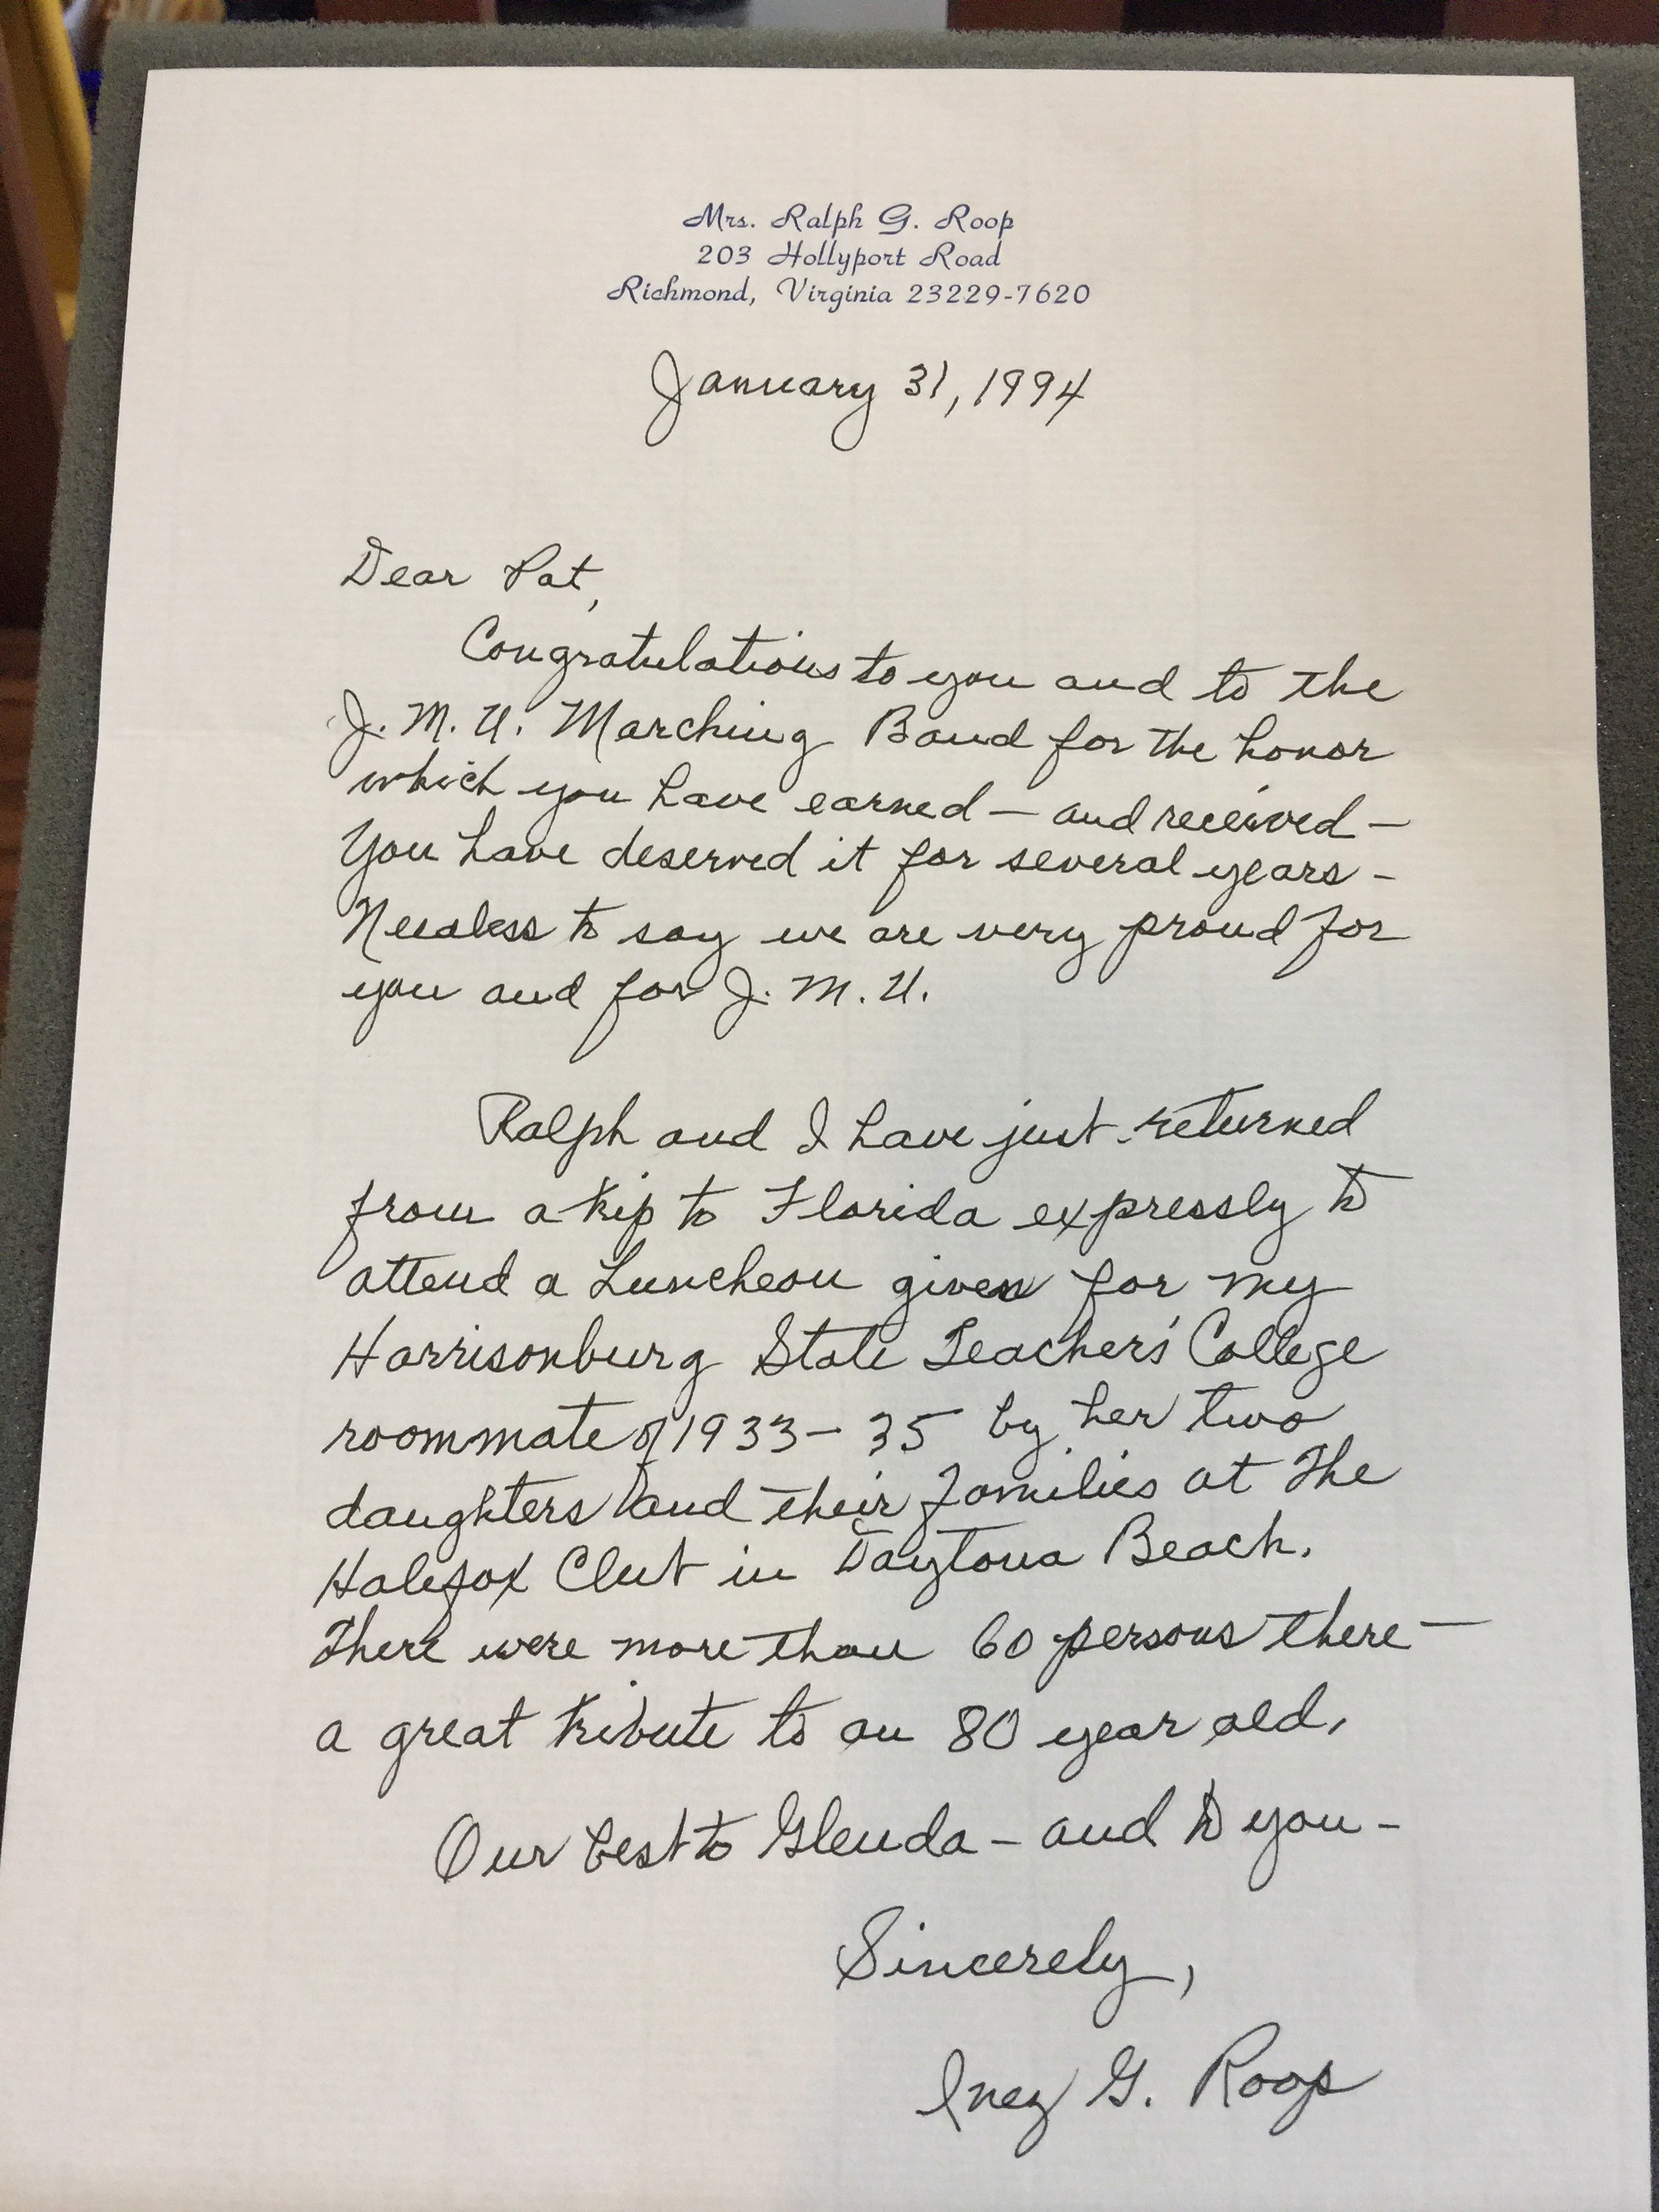 Mrs. Ralph G. Roop
203 Hollyport Road
Richmond, Virginia 23229-7620
January 31, 1994
Dear Pat,
Congratulations to you and to the
J. M. U. Marching Band for the honor
which you have earned — and received —
You have deserved it for several years -
Needless to say we are very proud for
you and for J. M. U.
Ralph and I have just returned
from a trip to Florida expressly to
attend a Luncheon given for my
Harrisonburg State Teachers' College
roommate of 1933-35 by her two
daughters and their families at the
Halifax Club in Daytona Beach.
There were more than 60 persons there —
a great tribute to an 80 year old.
Our best to Glenda - and to you -
Sincerely,
Inez G. Roop